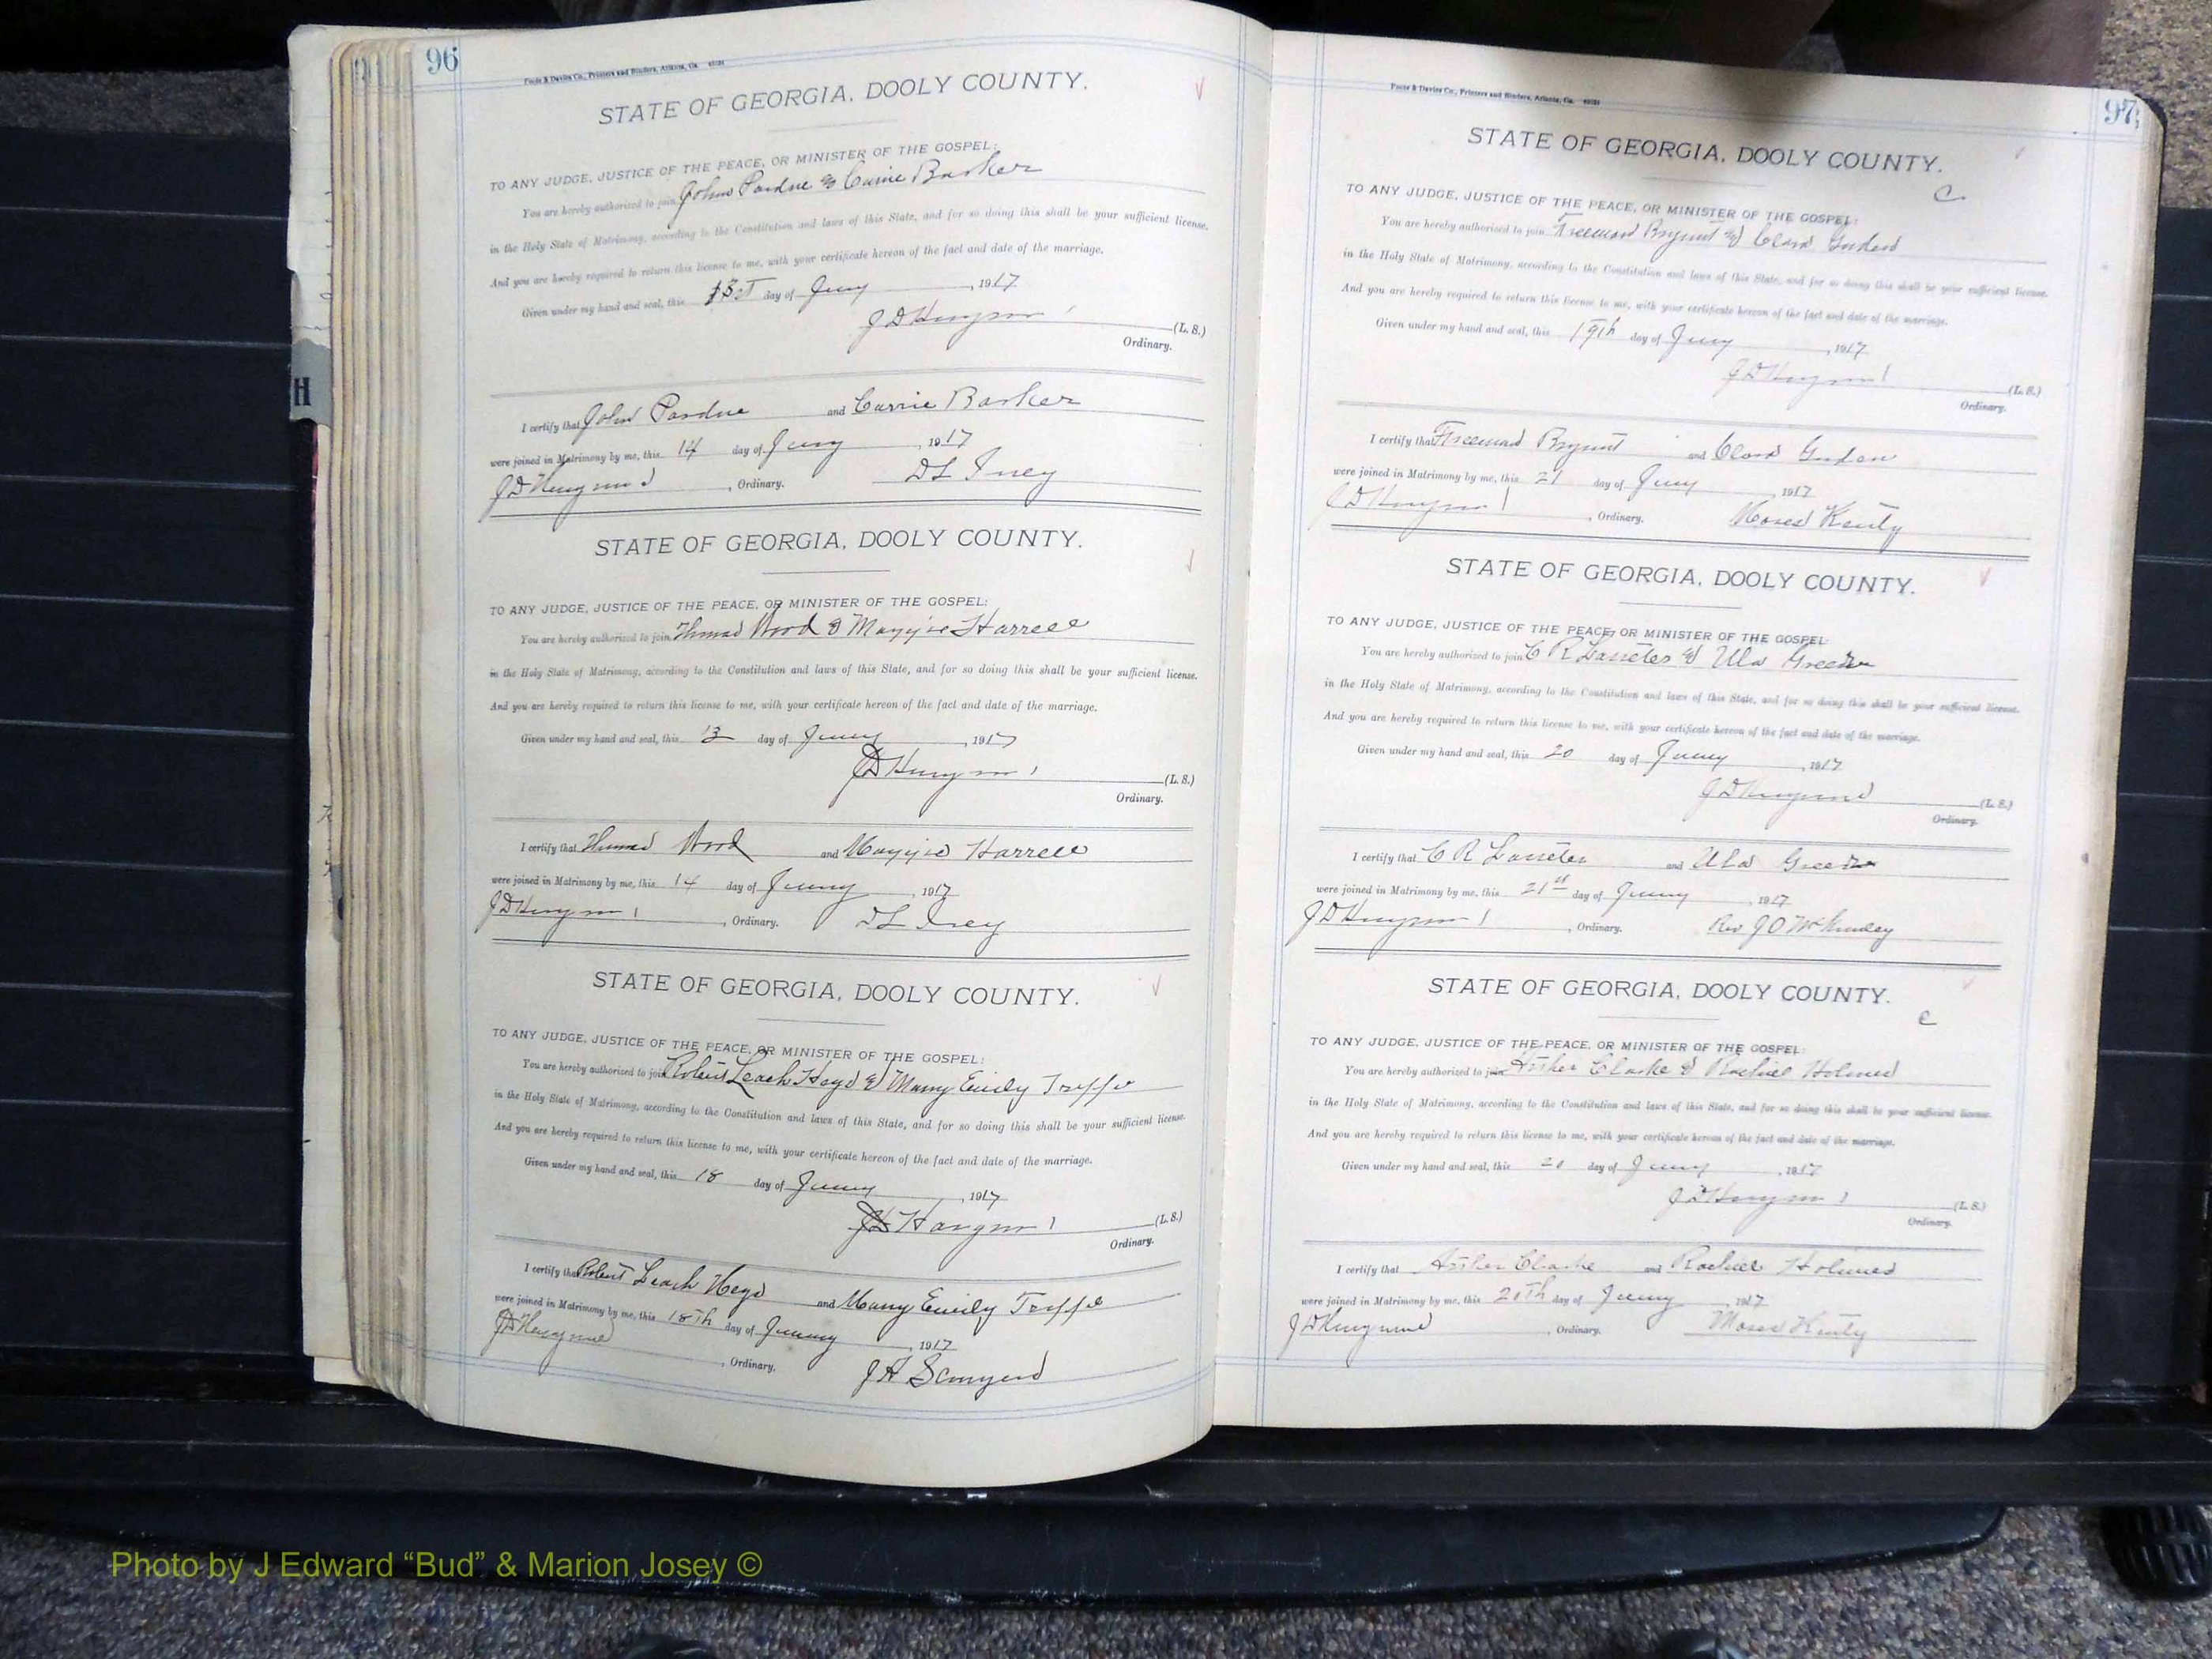 96
Foote & Davies Co., Printers and Binders, Atlanta, Ga.
STATE OF GEORGIA, DOOLY COUNTY.
TO ANY JUDGE, JUSTICE OF THE PEACE, OR MINISTER OF THE GOSPEL:
You are hereby authorized to join John Pardue & Carrie Barker
in the Holy State of Matrimony, according to the Constitution and laws of this State, and for so doing this shall be your sufficient license.
And you are hereby required to return this license to me, with your certificate hereon of the fact and date of the marriage.
Given under my hand and seal, this day of Jany, 1917
(L. S.)
Ordinary.
I certify that John Pardue and Carrie Barker
were joined in Matrimony by me, this 14 day of Jany, 1917
, Ordinary. D L
STATE OF GEORGIA, DOOLY COUNTY.
TO ANY JUDGE, JUSTICE OF THE PEACE, OR MINISTER OF THE GOSPEL:
You are hereby authorized to join Thomas Wood & Maggie Harrell
in the Holy State of Matrimony, according to the Constitution and laws of this State, and for so doing this shall be your sufficient license.
And you are hereby required to return this license to me, with your certificate hereon of the fact and date of the marriage.
Given under my hand and seal, this 13 day of Jany, 1917
(L. S.)
Ordinary.
I certify that Thomas Wood and Maggie Harrell
were joined in Matrimony by me, this 14 day of Jany, 1917
, Ordinary. D L
STATE OF GEORGIA, DOOLY COUNTY.
TO ANY JUDGE, JUSTICE OF THE PEACE, OR MINISTER OF THE GOSPEL:
You are hereby authorized to join Robert Leach & Mary Emily
in the Holy State of Matrimony, according to the Constitution and laws of this State, and for so doing this shall be your sufficient license.
And you are hereby required to return this license to me, with your certificate hereon of the fact and date of the marriage.
Given under my hand and seal, this 18 day of Jany, 1917
(L. S.)
Ordinary.
I certify that Robert Leach and Mary Emily
were joined in Matrimony by me, this 18th day of Jany, 1917
, Ordinary. J H
97
Foote & Davies Co., Printers and Binders, Atlanta, Ga.
STATE OF GEORGIA, DOOLY COUNTY.
C
TO ANY JUDGE, JUSTICE OF THE PEACE, OR MINISTER OF THE GOSPEL:
You are hereby authorized to join Freeman Bryant & Clara
in the Holy State of Matrimony, according to the Constitution and laws of this State, and for so doing this shall be your sufficient license.
And you are hereby required to return this license to me, with your certificate hereon of the fact and date of the marriage.
Given under my hand and seal, this 19th day of Jany, 1917
(L. S.)
Ordinary.
I certify that Freeman Bryant and Clara
were joined in Matrimony by me, this 21 day of Jany, 1917
, Ordinary. Moses
STATE OF GEORGIA, DOOLY COUNTY.
TO ANY JUDGE, JUSTICE OF THE PEACE, OR MINISTER OF THE GOSPEL:
You are hereby authorized to join C R Lasseter & Ula Green
in the Holy State of Matrimony, according to the Constitution and laws of this State, and for so doing this shall be your sufficient license.
And you are hereby required to return this license to me, with your certificate hereon of the fact and date of the marriage.
Given under my hand and seal, this 20 day of Jany, 1917
(L. S.)
Ordinary.
I certify that C R Lasseter and Ula Green
were joined in Matrimony by me, this 21st day of Jany, 1917
, Ordinary. Rev J O
STATE OF GEORGIA, DOOLY COUNTY.
C
TO ANY JUDGE, JUSTICE OF THE PEACE, OR MINISTER OF THE GOSPEL:
You are hereby authorized to join Clarke & Holmes
in the Holy State of Matrimony, according to the Constitution and laws of this State, and for so doing this shall be your sufficient license.
And you are hereby required to return this license to me, with your certificate hereon of the fact and date of the marriage.
Given under my hand and seal, this 20 day of Jany, 1917
(L. S.)
Ordinary.
I certify that Clarke and Holmes
were joined in Matrimony by me, this 20th day of Jany, 1917
, Ordinary. Moses
Photo by J Edward “Bud” & Marion Josey ©